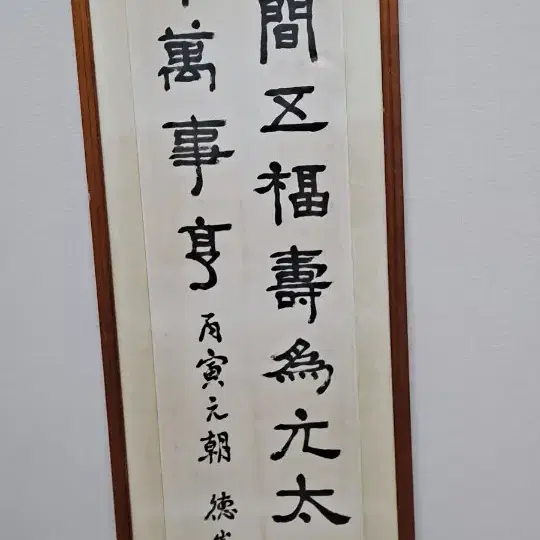 間五福壽為元太
萬事亨丙寅元朝 德